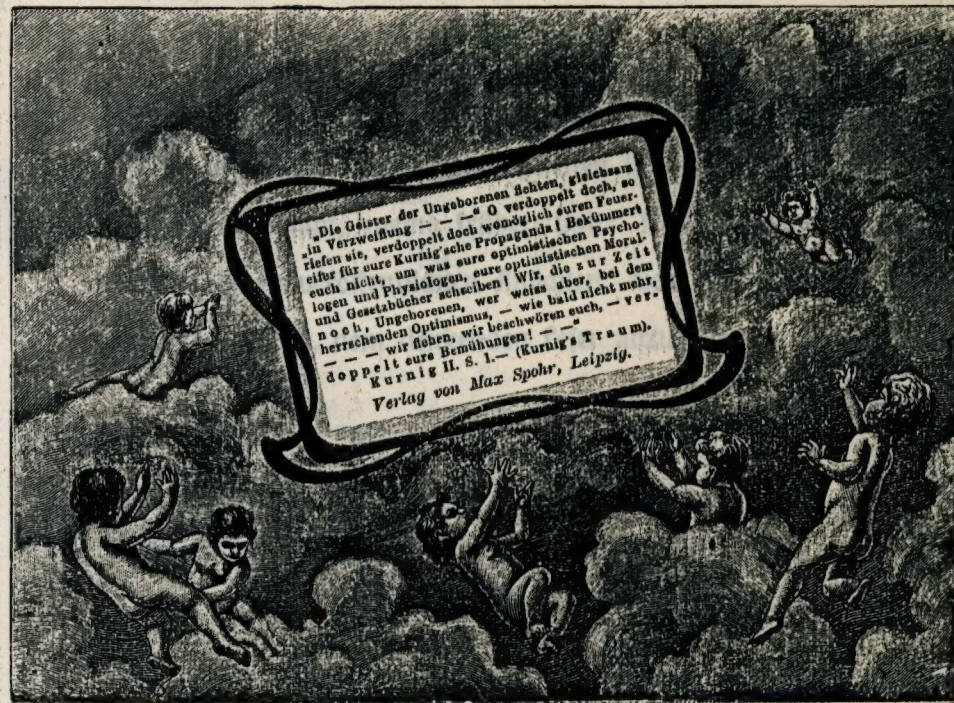 „Die Geister der Ungeborenen flehten, gleichsam
„in Verzweiflung — — —“ O verdoppelt doch, so
riefen sie, verdoppelt doch womöglich euren Feuer-
eifer für eure Kurnig'sche Propaganda! Bekümmert
euch nicht, um was eure optimistischen Psycho-
logen und Physiologen, eure optimistischen Moral-
und Gesetzbücher schreiben! Wir, die zur Zeit
noch, Ungeborenen, wer weiss aber, bei dem
herrschenden Optimismus, — wie bald nicht mehr,
— — — wir flehen, wir beschwören euch, — ver-
doppelt eure Bemühungen! — —“
Kurnig II. S. 1.— (Kurnig's Traum).
Verlag von Max Spohr, Leipzig.